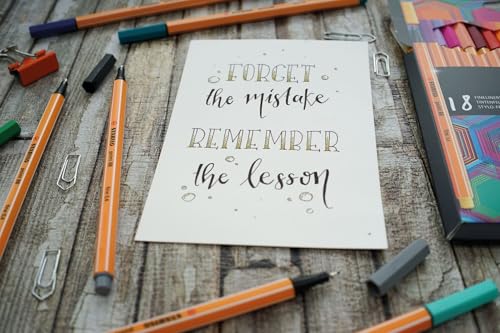 FORGET
the mistake
REMEMBER
the lesson
18
FINELINER